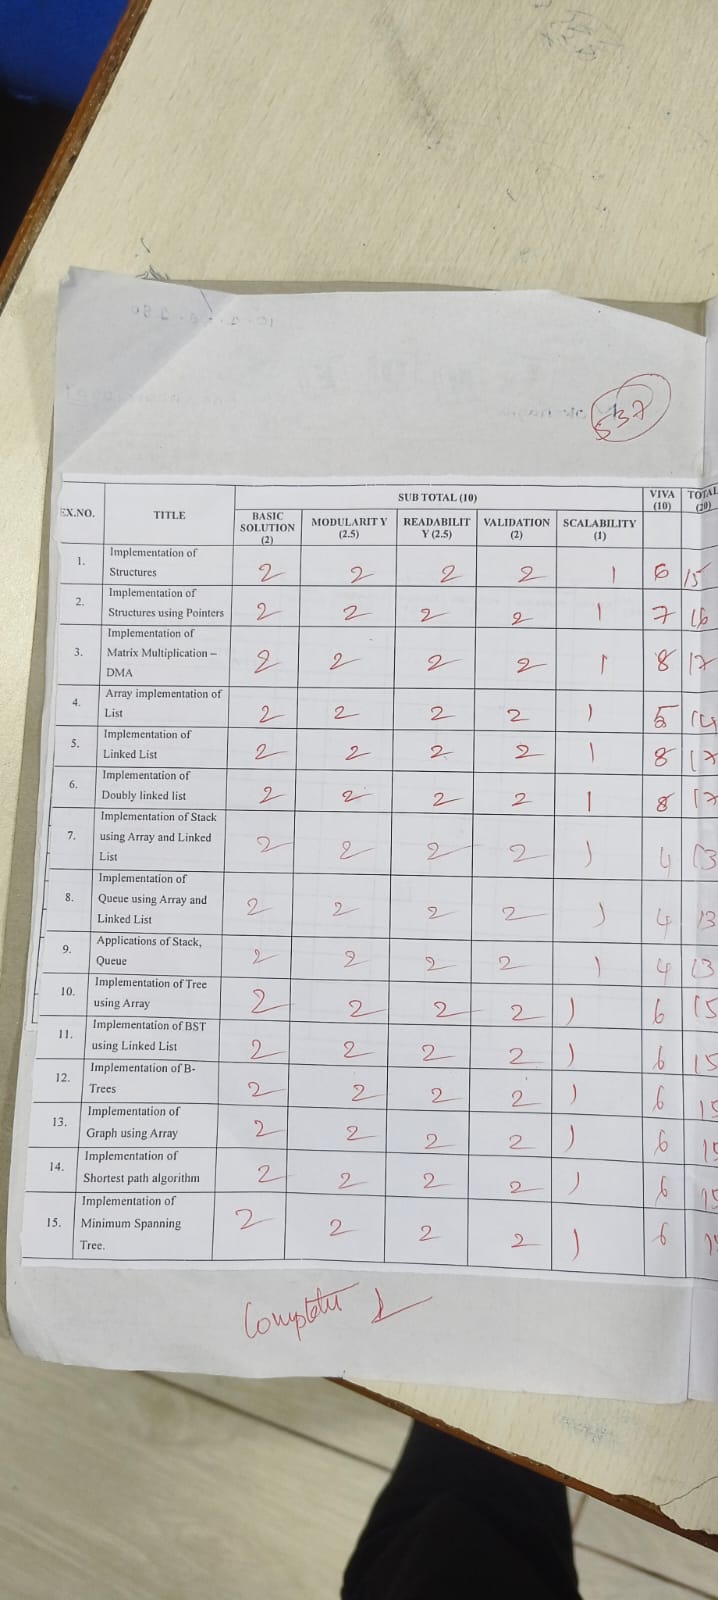 537
EX.NO. TITLE SUB TOTAL (10) VIVA (10) TOTAL (20)
BASIC SOLUTION (2) MODULARIT Y (2.5) READABILIT Y (2.5) VALIDATION (2) SCALABILITY (1)
1. Implementation of Structures 2 2 2 2 1 6 15
2. Implementation of Structures using Pointers 2 2 2 2 1 7 16
3. Implementation of Matrix Multiplication – DMA 2 2 2 2 1 8 17
4. Array implementation of List 2 2 2 2 1 5 14
5. Implementation of Linked List 2 2 2 2 1 8 17
6. Implementation of Doubly linked list 2 2 2 2 1 8 17
7. Implementation of Stack using Array and Linked List 2 2 2 2 1 4 13
8. Implementation of Queue using Array and Linked List 2 2 2 2 1 4 13
9. Applications of Stack, Queue 2 2 2 2 1 4 13
10. Implementation of Tree using Array 2 2 2 2 1 6 15
11. Implementation of BST using Linked List 2 2 2 2 1 6 15
12. Implementation of B-Trees 2 2 2 2 1 6 15
13. Implementation of Graph using Array 2 2 2 2 1 6 15
14. Implementation of Shortest path algorithm 2 2 2 2 1 6 15
15. Implementation of Minimum Spanning Tree. 2 2 2 2 1 6